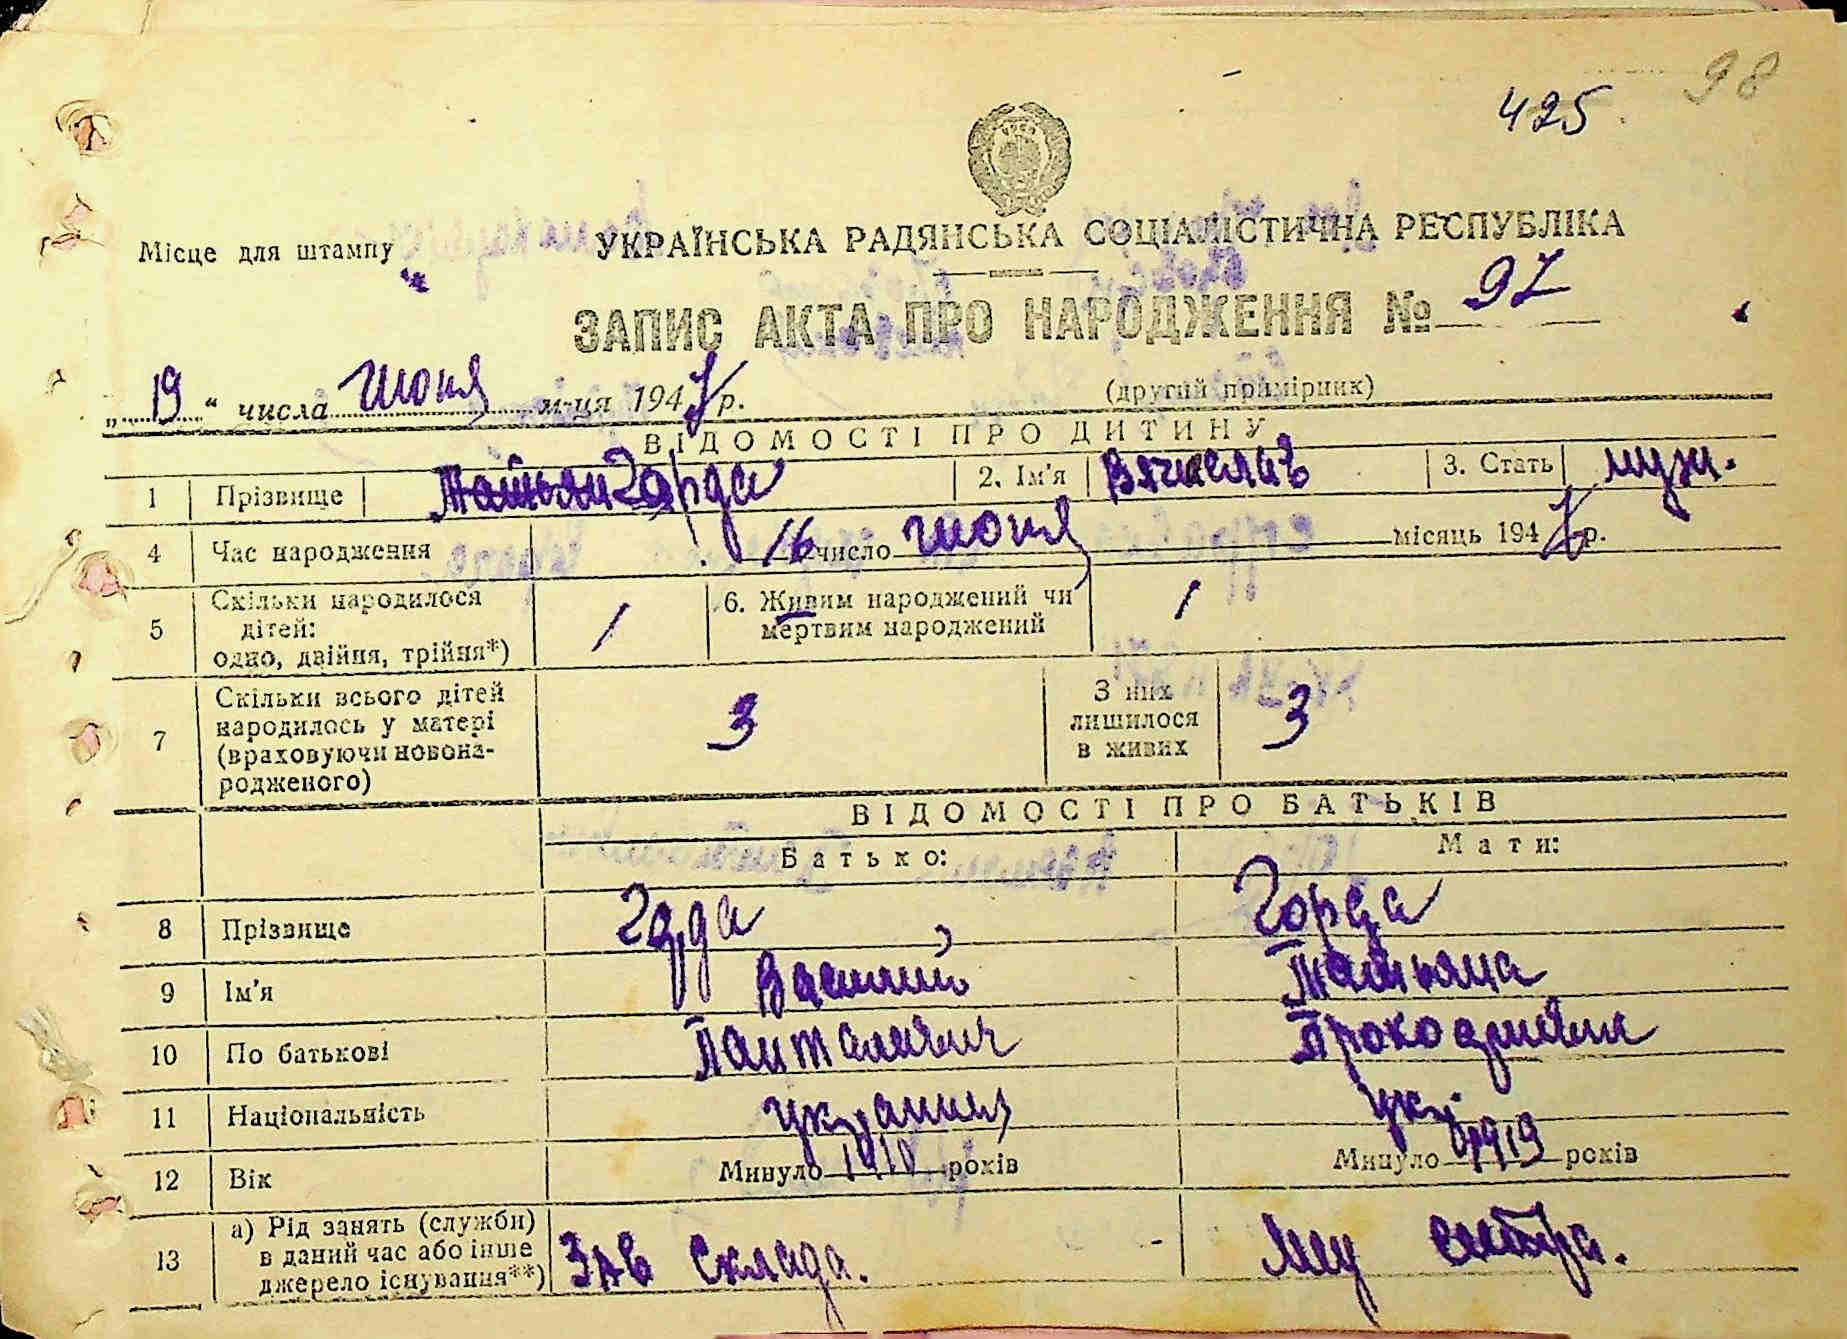 98
425.
Місце для штампу
УКРАЇНСЬКА РАДЯНСЬКА СОЦІАЛІСТИЧНА РЕСПУБЛІКА
ЗАПИС АКТА ПРО НАРОДЖЕННЯ № 97
(другий примірник)
„19“ числа июня м-ця 1947 р.
ВІДОМОСТІ ПРО ДИТИНУ
1 Прізвище Горда 2. Ім'я Вячеслав 3. Стать муж.
4 Час народження 16 число июня місяць 1947 р.
5 Скільки народилося дітей: одно, двійня, трійня*) 1 6. Живим народжений чи мертвим народжений 1
7 Скільки всього дітей народилось у матері (враховуючи новонародженого) 3 З них лишилося в живих 3
ВІДОМОСТІ ПРО БАТЬКІВ
Батько: Мати:
8 Прізвище Горда Горда
9 Ім'я Василий Татьяна
10 По батькові
11 Національність украинец укр.
12 Вік Минуло 1910 років Минуло 1919 років
13 а) Рід занять (служби) в даний час або інше джерело існування**) Зав склада. Мед сестра.